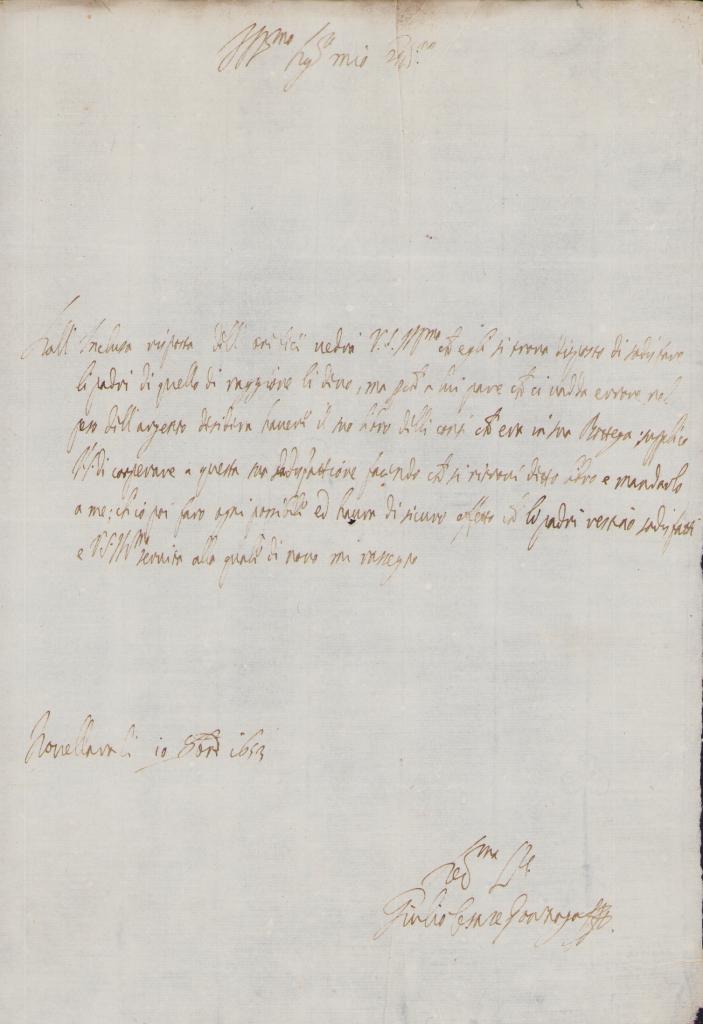 Ill.mo Sig.r mio
Dall' Inclusa risposta dell' orefice vedrà V.S. Ill.ma ch' egli si trova disposto di sodisfare
li padri di quello di raggione li deve, ma perche a lui pare che ci vadda errore nel
peso dell'argento desidera havere il suo libro delli conti che era in sua Bottega; supplico
V.S. di cooperare a questa sua sodisfattione facendo che si ritrovi ditto libro e mandarlo
a me; ch'io poi farò ogni possibile ed havrà di sicuro effetto che li padri restino sodisfatti
e V.S. Ill.ma servita alla quale di novo mi rassegno
Novellara li 10 1653
Giulio Cesare Gonzaga